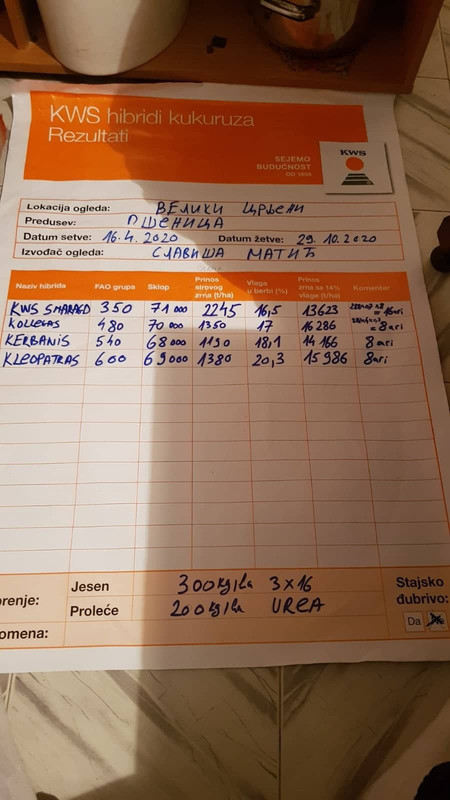 KWS hibridi kukuruza
Rezultati
SEJEMO
BUDUĆNOST
OD 1856
KWS
Lokacija ogleda: ВЕЛИКИ ЦРЉЕНИ
Predusev: ПШЕНИЦА
Datum setve: 16.4.2020 Datum žetve: 29.10.2020
Izvođač ogleda: СЛАВИША МАТИЋ
Naziv hibrida FAO grupa Sklop Prinos sirovog zrna (t/ha) Vlaga u berbi (%) Prinos zrna sa 14% vlage (t/ha) Komentar
KWS SMARAGD 350 71000 2245 16,5 13623 = 16ari
KOLLEGAS 480 70000 1350 17 16286 = 8ari
KERBANIS 540 68000 1190 18,1 14166 8ari
KLEOPATRAS 600 69000 1380 20,3 15986 8ari
Jesen 300kg/ha 3x16
Proleće 200kg/ha UREA
Stajsko
đubrivo:
Da